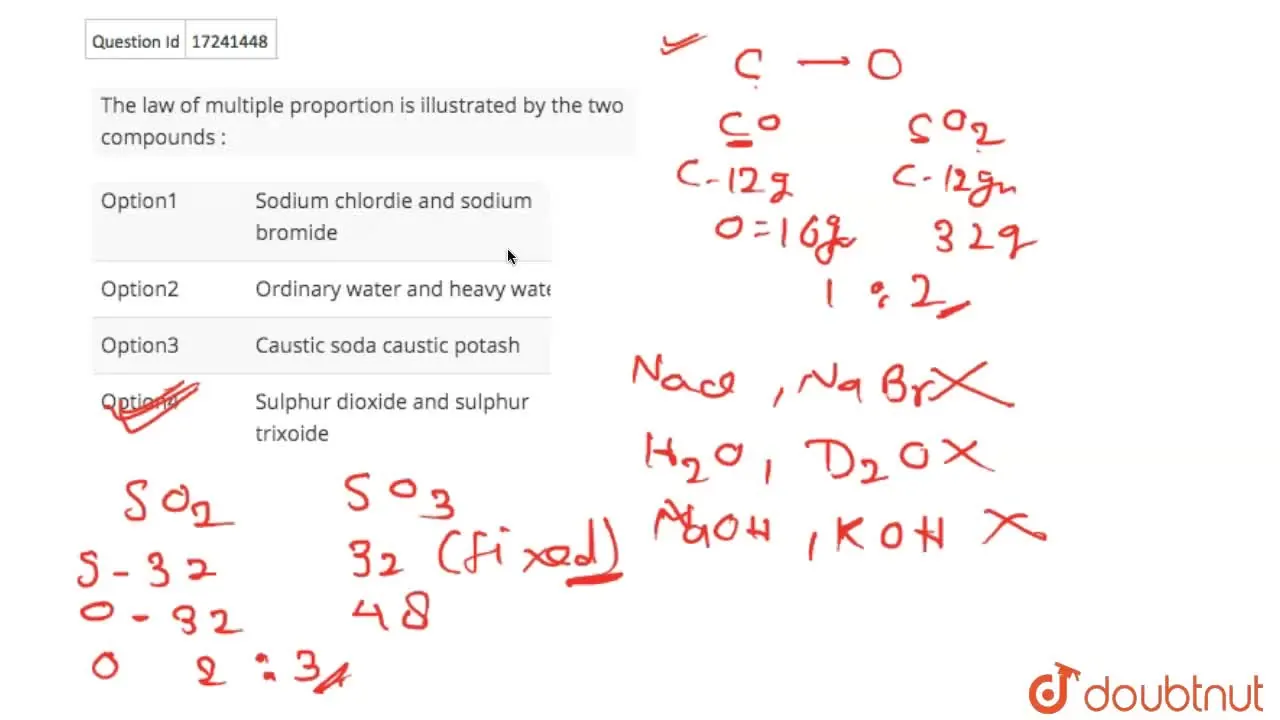 Question Id 17241448
The law of multiple proportion is illustrated by the two
compounds :
Option1 Sodium chlordie and sodium
bromide
Option2 Ordinary water and heavy wate
Option3 Caustic soda caustic potash
Option4 Sulphur dioxide and sulphur
trixoide
SO2 SO3
S - 32 32 (fixed)
O - 32 48
O 2 : 3
C → O
CO SO2
C - 12g C - 12gm
O = 16g 32g
1 : 2
NaCl , NaBr X
H2O , D2O X
NaOH , KOH X
doubtnut